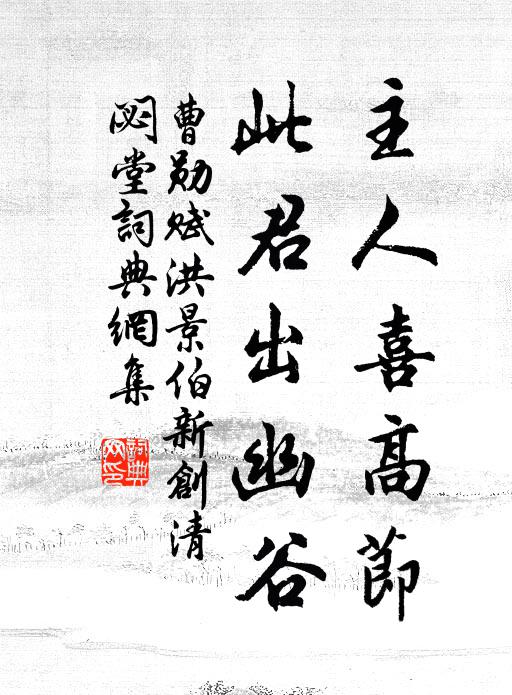 主人喜高節
此君出幽谷
曹勛賦洪景伯新創清
閟堂詞典網集
詞典网印